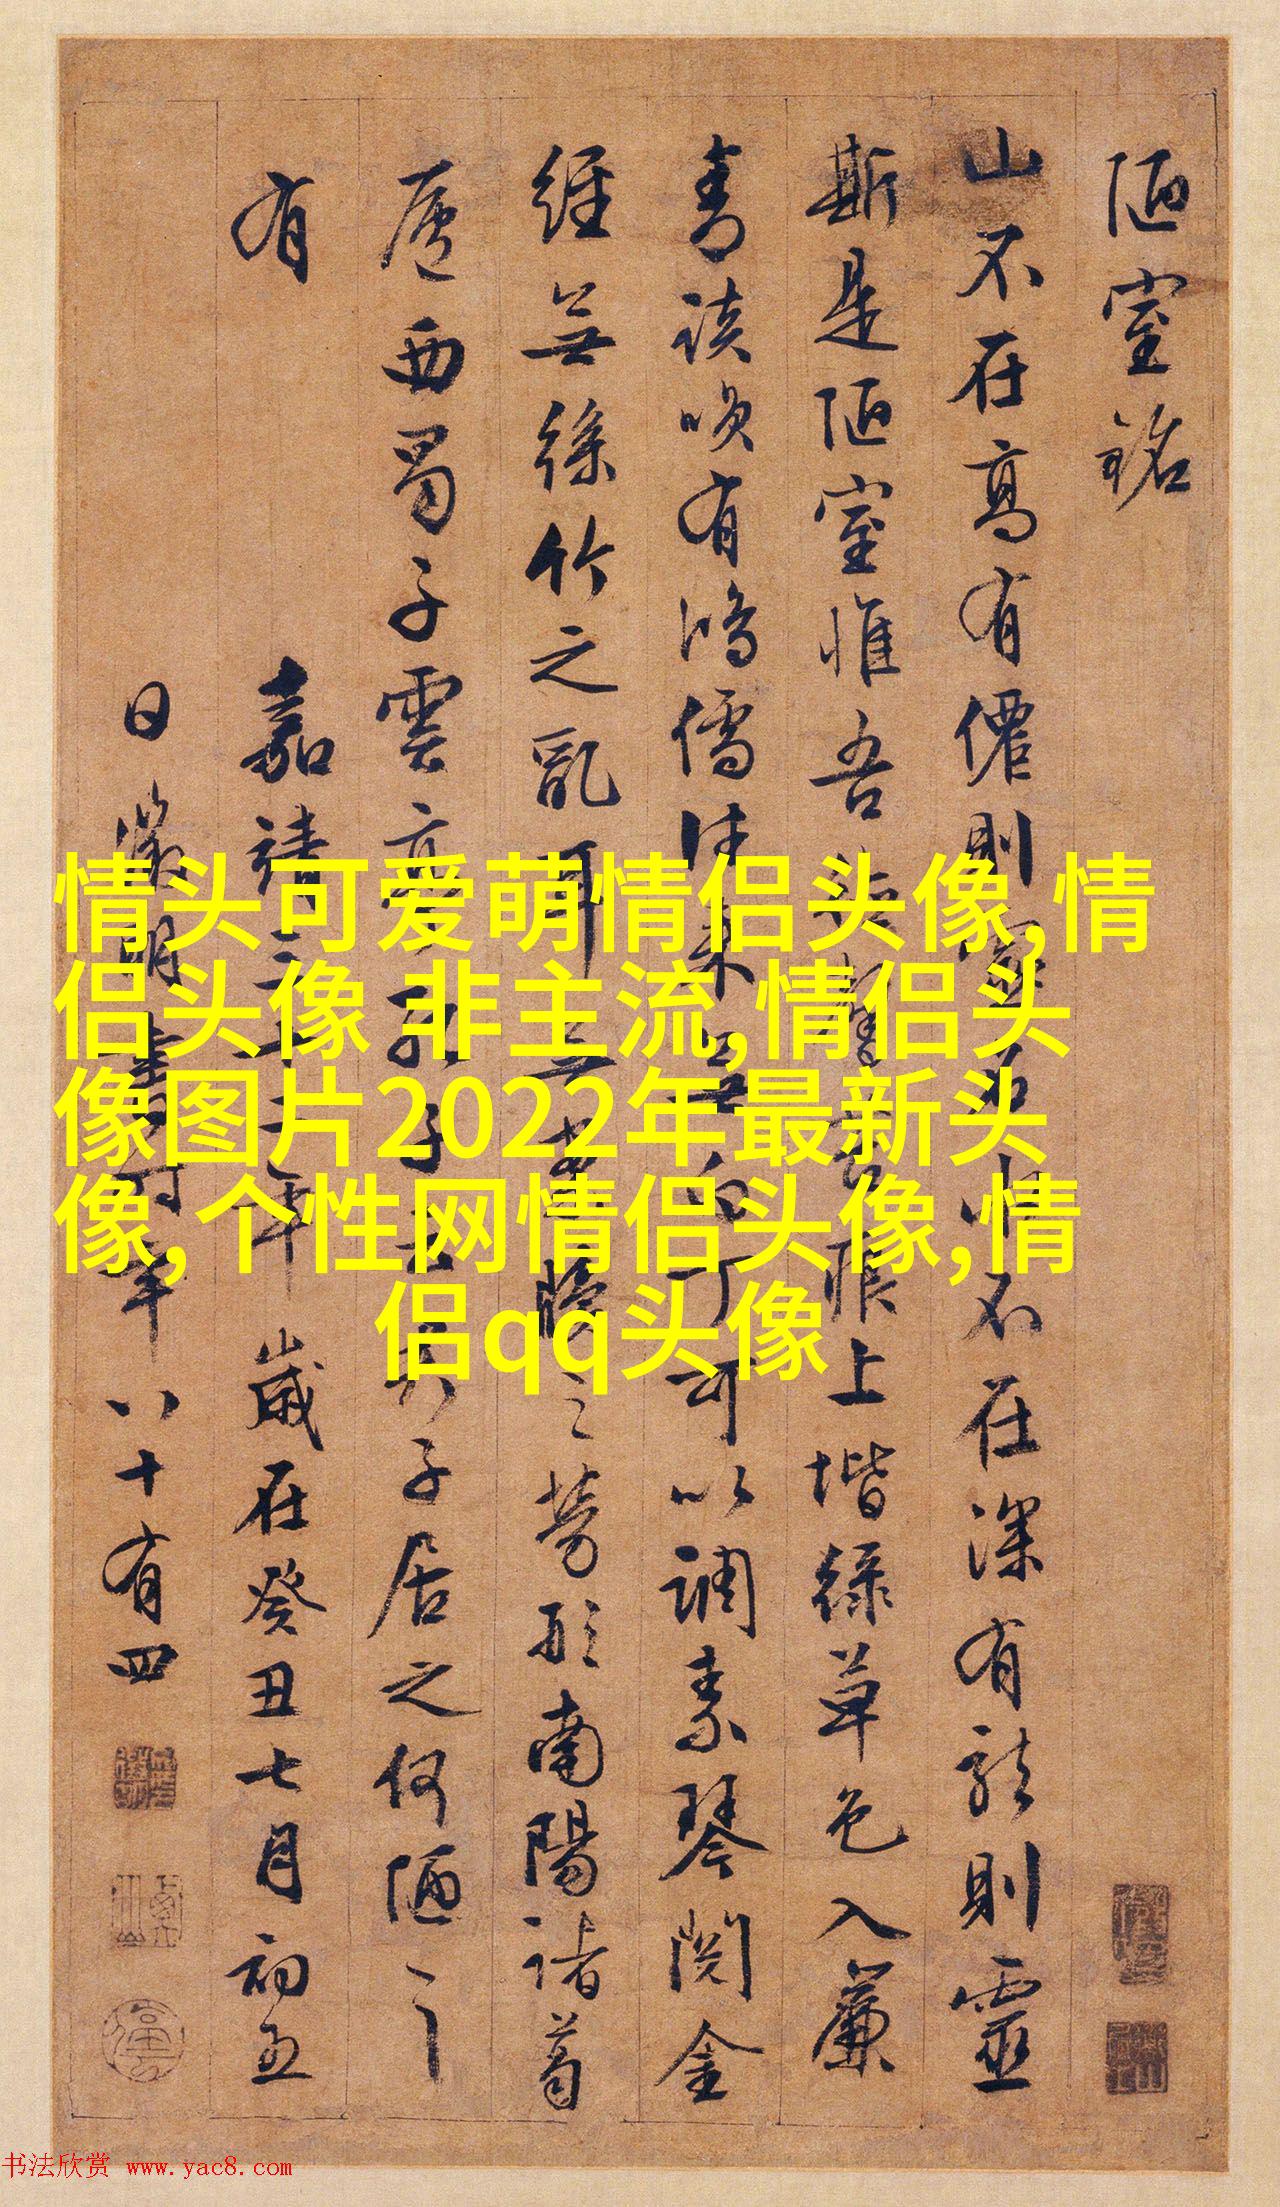 陋室銘
山不在高有僊則名水不在深有龍則靈
斯是陋室惟吾德馨苔痕上堦綠草色入簾
青談咲有鴻儒往来無白丁可以調素琴閱金
經無絲竹之亂耳無案牘之勞形南陽諸葛
廬西蜀子雲亭孔子云君子居之何陋之
有 嘉靖三十二年歲在癸丑七月初五
日徵明書時年八十有四
情头可爱萌情侣头像,情
侣头像 非主流,情侣头
像图片2022年最新头
像,个性网情侣头像,情
侣qq头像
书法欣赏 www.yac8.com